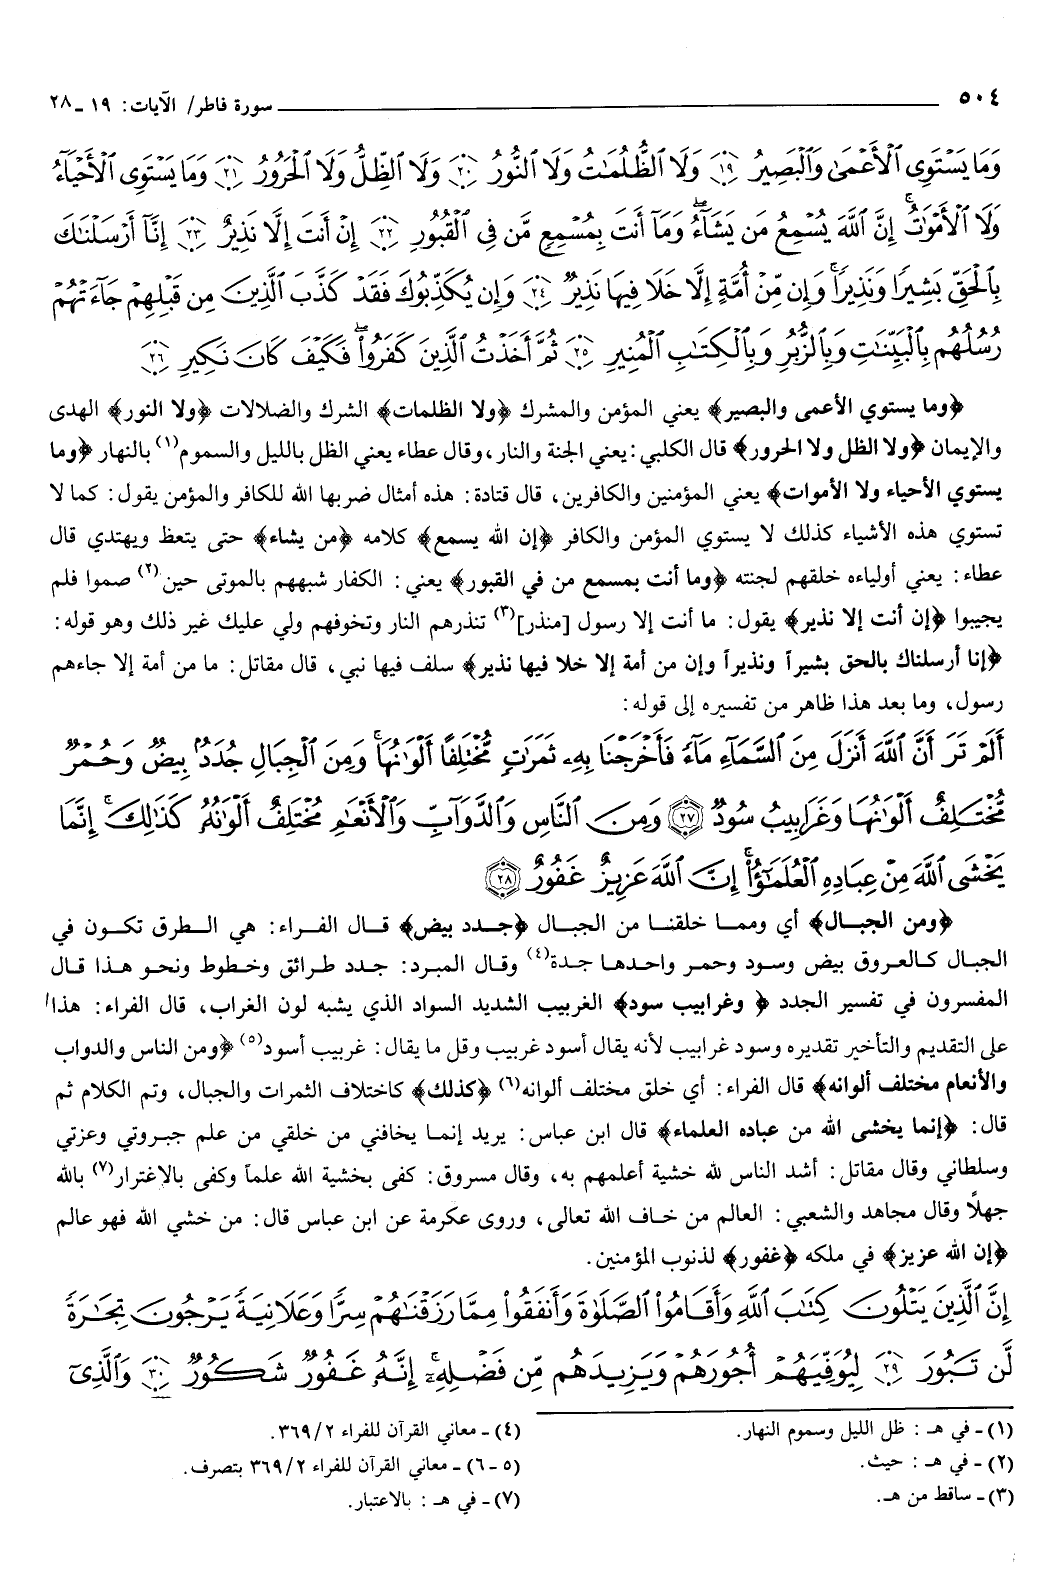 ٥٠٤ سورة فاطر/ الآيات: ١٩ ـ ٢٨
وَمَا يَسْتَوِي الْأَعْمَىٰ وَالْبَصِيرُ ﴿١٩﴾ وَلَا الظُّلُمَاتُ وَلَا النُّورُ ﴿٢٠﴾ وَلَا الظِّلُّ وَلَا الْحَرُورُ ﴿٢١﴾ وَمَا يَسْتَوِي الْأَحْيَاءُ
وَلَا الْأَمْوَاتُ إِنَّ اللَّهَ يُسْمِعُ مَن يَشَاءُ وَمَا أَنتَ بِمُسْمِعٍ مَّن فِي الْقُبُورِ ﴿٢٢﴾ إِنْ أَنتَ إِلَّا نَذِيرٌ ﴿٢٣﴾ إِنَّا أَرْسَلْنَاكَ
بِالْحَقِّ بَشِيرًا وَنَذِيرًا وَإِن مِّنْ أُمَّةٍ إِلَّا خَلَا فِيهَا نَذِيرٌ ﴿٢٤﴾ وَإِن يُكَذِّبُوكَ فَقَدْ كَذَّبَ الَّذِينَ مِن قَبْلِهِمْ جَاءَتْهُمْ
رُسُلُهُم بِالْبَيِّنَاتِ وَبِالزُّبُرِ وَبِالْكِتَابِ الْمُنِيرِ ﴿٢٥﴾ ثُمَّ أَخَذْتُ الَّذِينَ كَفَرُوا فَكَيْفَ كَانَ نَكِيرِ ﴿٢٦﴾
﴿وما يستوي الأعمى والبصير﴾ يعني المؤمن والمشرك ﴿ولا الظلمات﴾ الشرك والضلالات ﴿ولا النور﴾ الهدى
والإيمان ﴿ولا الظل ولا الحرور﴾ قال الكلبي: يعني الجنة والنار، وقال عطاء يعني الظل بالليل والسموم(١) بالنهار ﴿وما
يستوي الأحياء ولا الأموات﴾ يعني المؤمنين والكافرين، قال قتادة: هذه أمثال ضربها الله للكافر والمؤمن يقول: كما لا
تستوي هذه الأشياء كذلك لا يستوي المؤمن والكافر ﴿إن الله يسمع﴾ كلامه ﴿من يشاء﴾ حتى يتعظ ويهتدي قال
عطاء: يعني أولياءه خلقهم لجنته ﴿وما أنت بمسمع من في القبور﴾ يعني: الكفار شبههم بالموتى حين(٢) صموا فلم
يجيبوا ﴿إن أنت إلا نذير﴾ يقول: ما أنت إلا رسول [منذر](٣) تنذرهم النار وتخوفهم ولي عليك غير ذلك وهو قوله:
﴿إنا أرسلناك بالحق بشيراً ونذيراً وإن من أمة إلا خلا فيها نذير﴾ سلف فيها نبي، قال مقاتل: ما من أمة إلا جاءهم
رسول، وما بعد هذا ظاهر من تفسيره إلى قوله:
أَلَمْ تَرَ أَنَّ اللَّهَ أَنزَلَ مِنَ السَّمَاءِ مَاءً فَأَخْرَجْنَا بِهِ ثَمَرَاتٍ مُّخْتَلِفًا أَلْوَانُهَا وَمِنَ الْجِبَالِ جُدَدٌ بِيضٌ وَحُمْرٌ
مُّخْتَلِفٌ أَلْوَانُهَا وَغَرَابِيبُ سُودٌ ﴿٢٧﴾ وَمِنَ النَّاسِ وَالدَّوَابِّ وَالْأَنْعَامِ مُخْتَلِفٌ أَلْوَانُهُ كَذَٰلِكَ إِنَّمَا
يَخْشَى اللَّهَ مِنْ عِبَادِهِ الْعُلَمَاءُ إِنَّ اللَّهَ عَزِيزٌ غَفُورٌ ﴿٢٨﴾
﴿ومن الجبال﴾ أي ومما خلقنا من الجبال ﴿جدد بيض﴾ قال الفراء: هي الطرق تكون في
الجبال كالعروق بيض وسود وحمر واحدها جدة(٤) وقال المبرد: جدد طرائق وخطوط ونحو هذا قال
المفسرون في تفسير الجدد ﴿ وغرابيب سود﴾ الغربيب الشديد السواد الذي يشبه لون الغراب، قال الفراء: هذا
على التقديم والتأخير تقديره وسود غرابيب لأنه يقال أسود غربيب وقل ما يقال: غربيب أسود(٥) ﴿ومن الناس والدواب
والأنعام مختلف ألوانه﴾ قال الفراء: أي خلق مختلف ألوانه(٦) ﴿كذلك﴾ كاختلاف الثمرات والجبال، وتم الكلام ثم
قال: ﴿إنما يخشى الله من عباده العلماء﴾ قال ابن عباس: يريد إنما يخافني من خلقي من علم جبروتي وعزتي
وسلطاني وقال مقاتل: أشد الناس لله خشية أعلمهم به، وقال مسروق: كفى بخشية الله علماً وكفى بالإغترار(٧) بالله
جهلاً وقال مجاهد والشعبي: العالم من خاف الله تعالى، وروى عكرمة عن ابن عباس قال: من خشي الله فهو عالم
﴿إن الله عزيز﴾ في ملكه ﴿غفور﴾ لذنوب المؤمنين.
إِنَّ الَّذِينَ يَتْلُونَ كِتَابَ اللَّهِ وَأَقَامُوا الصَّلَاةَ وَأَنفَقُوا مِمَّا رَزَقْنَاهُمْ سِرًّا وَعَلَانِيَةً يَرْجُونَ تِجَارَةً
لَّن تَبُورَ ﴿٢٩﴾ لِيُوَفِّيَهُمْ أُجُورَهُمْ وَيَزِيدَهُم مِّن فَضْلِهِ إِنَّهُ غَفُورٌ شَكُورٌ ﴿٣٠﴾ وَالَّذِي
(١) ـ في هـ : ظل الليل وسموم النهار.
(٢) ـ في هـ : حيث.
(٣) ـ ساقط من هـ.
(٤) ـ معاني القرآن للفراء ٣٦٩/٢.
(٥ ـ ٦) ـ معاني القرآن للفراء ٣٦٩/٢ بتصرف.
(٧) ـ في هـ : بالاعتبار.